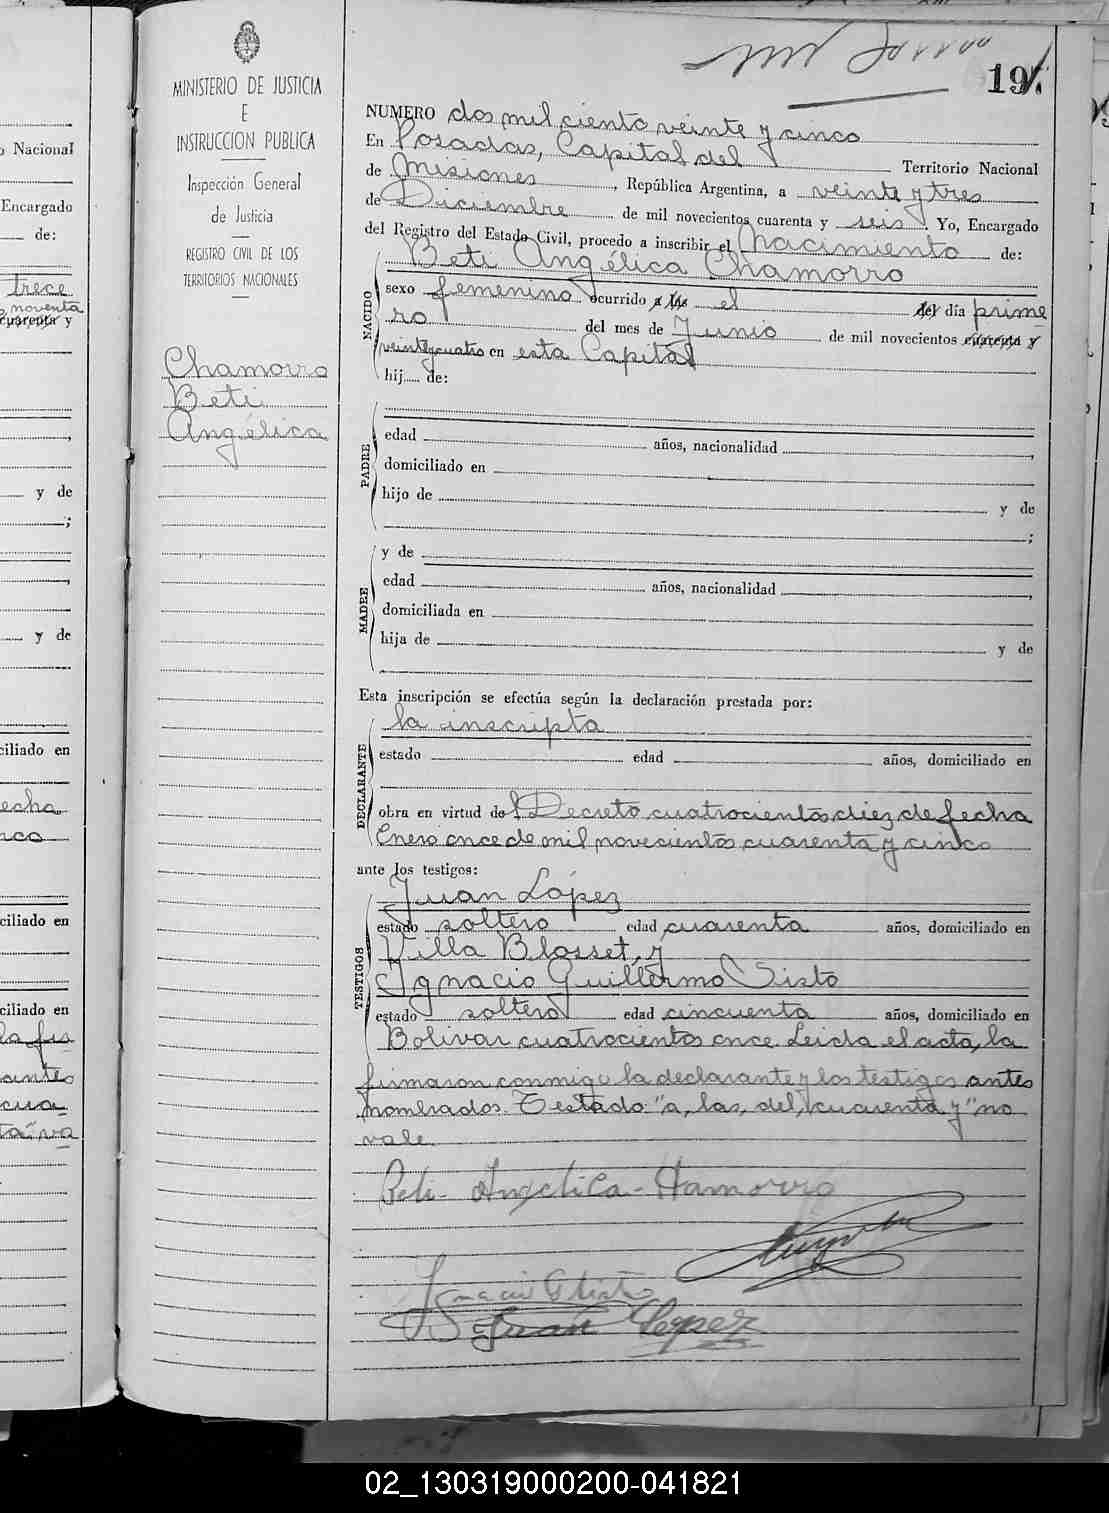 MINISTERIO DE JUSTICIA
E
INSTRUCCION PUBLICA
Inspección General
de Justicia
REGISTRO CIVIL DE LOS
TERRITORIOS NACIONALES
Chamorro
Beti
Angélica
o Nacional
Encargado
de:
trece
noventa
cuarenta y
y de
;
y de
ciliado en
echa
nco
ciliado en
ciliado en
la fir
antes
cua
ta" va
197
NUMERO dos mil ciento veinte y cinco
En Posadas, Capital del Territorio Nacional
de Misiones, República Argentina, a veinte y tres
de Diciembre de mil novecientos cuarenta y seis. Yo, Encargado
del Registro del Estado Civil, procedo a inscribir el Nacimiento de:
Beti Angélica Chamorro
NACIDO
sexo femenino ocurrido a las el del día prime
ro del mes de Junio de mil novecientos cuarenta y
veinteycuatro en esta Capital
hij de:
PADRE
edad años, nacionalidad ,
domiciliado en
hijo de y de
;
MADRE
y de
edad años, nacionalidad ,
domiciliada en
hija de y de
Esta inscripción se efectúa según la declaración prestada por:
DECLARANTE
la inscripta
estado edad años, domiciliado en
obra en virtud del Decreto cuatrocientos diez de fecha
Enero once de mil novecientos cuarenta y cinco
ante los testigos:
TESTIGOS
Juan López
estado soltero edad cuarenta años, domiciliado en
Villa Blosset, y
Ignacio Guillermo Sisto
estado soltero edad cincuenta años, domiciliado en
Bolivar cuatrocientos once. Leida el acta, la
firmaron conmigo la declarante y los testigos antes
nombrados. Testado "a, las, del, cuarenta y" no
vale.
Beti - Angelica - Hamorro
Ignacio G Sisto
Juan Lopez
02_130319000200-041821